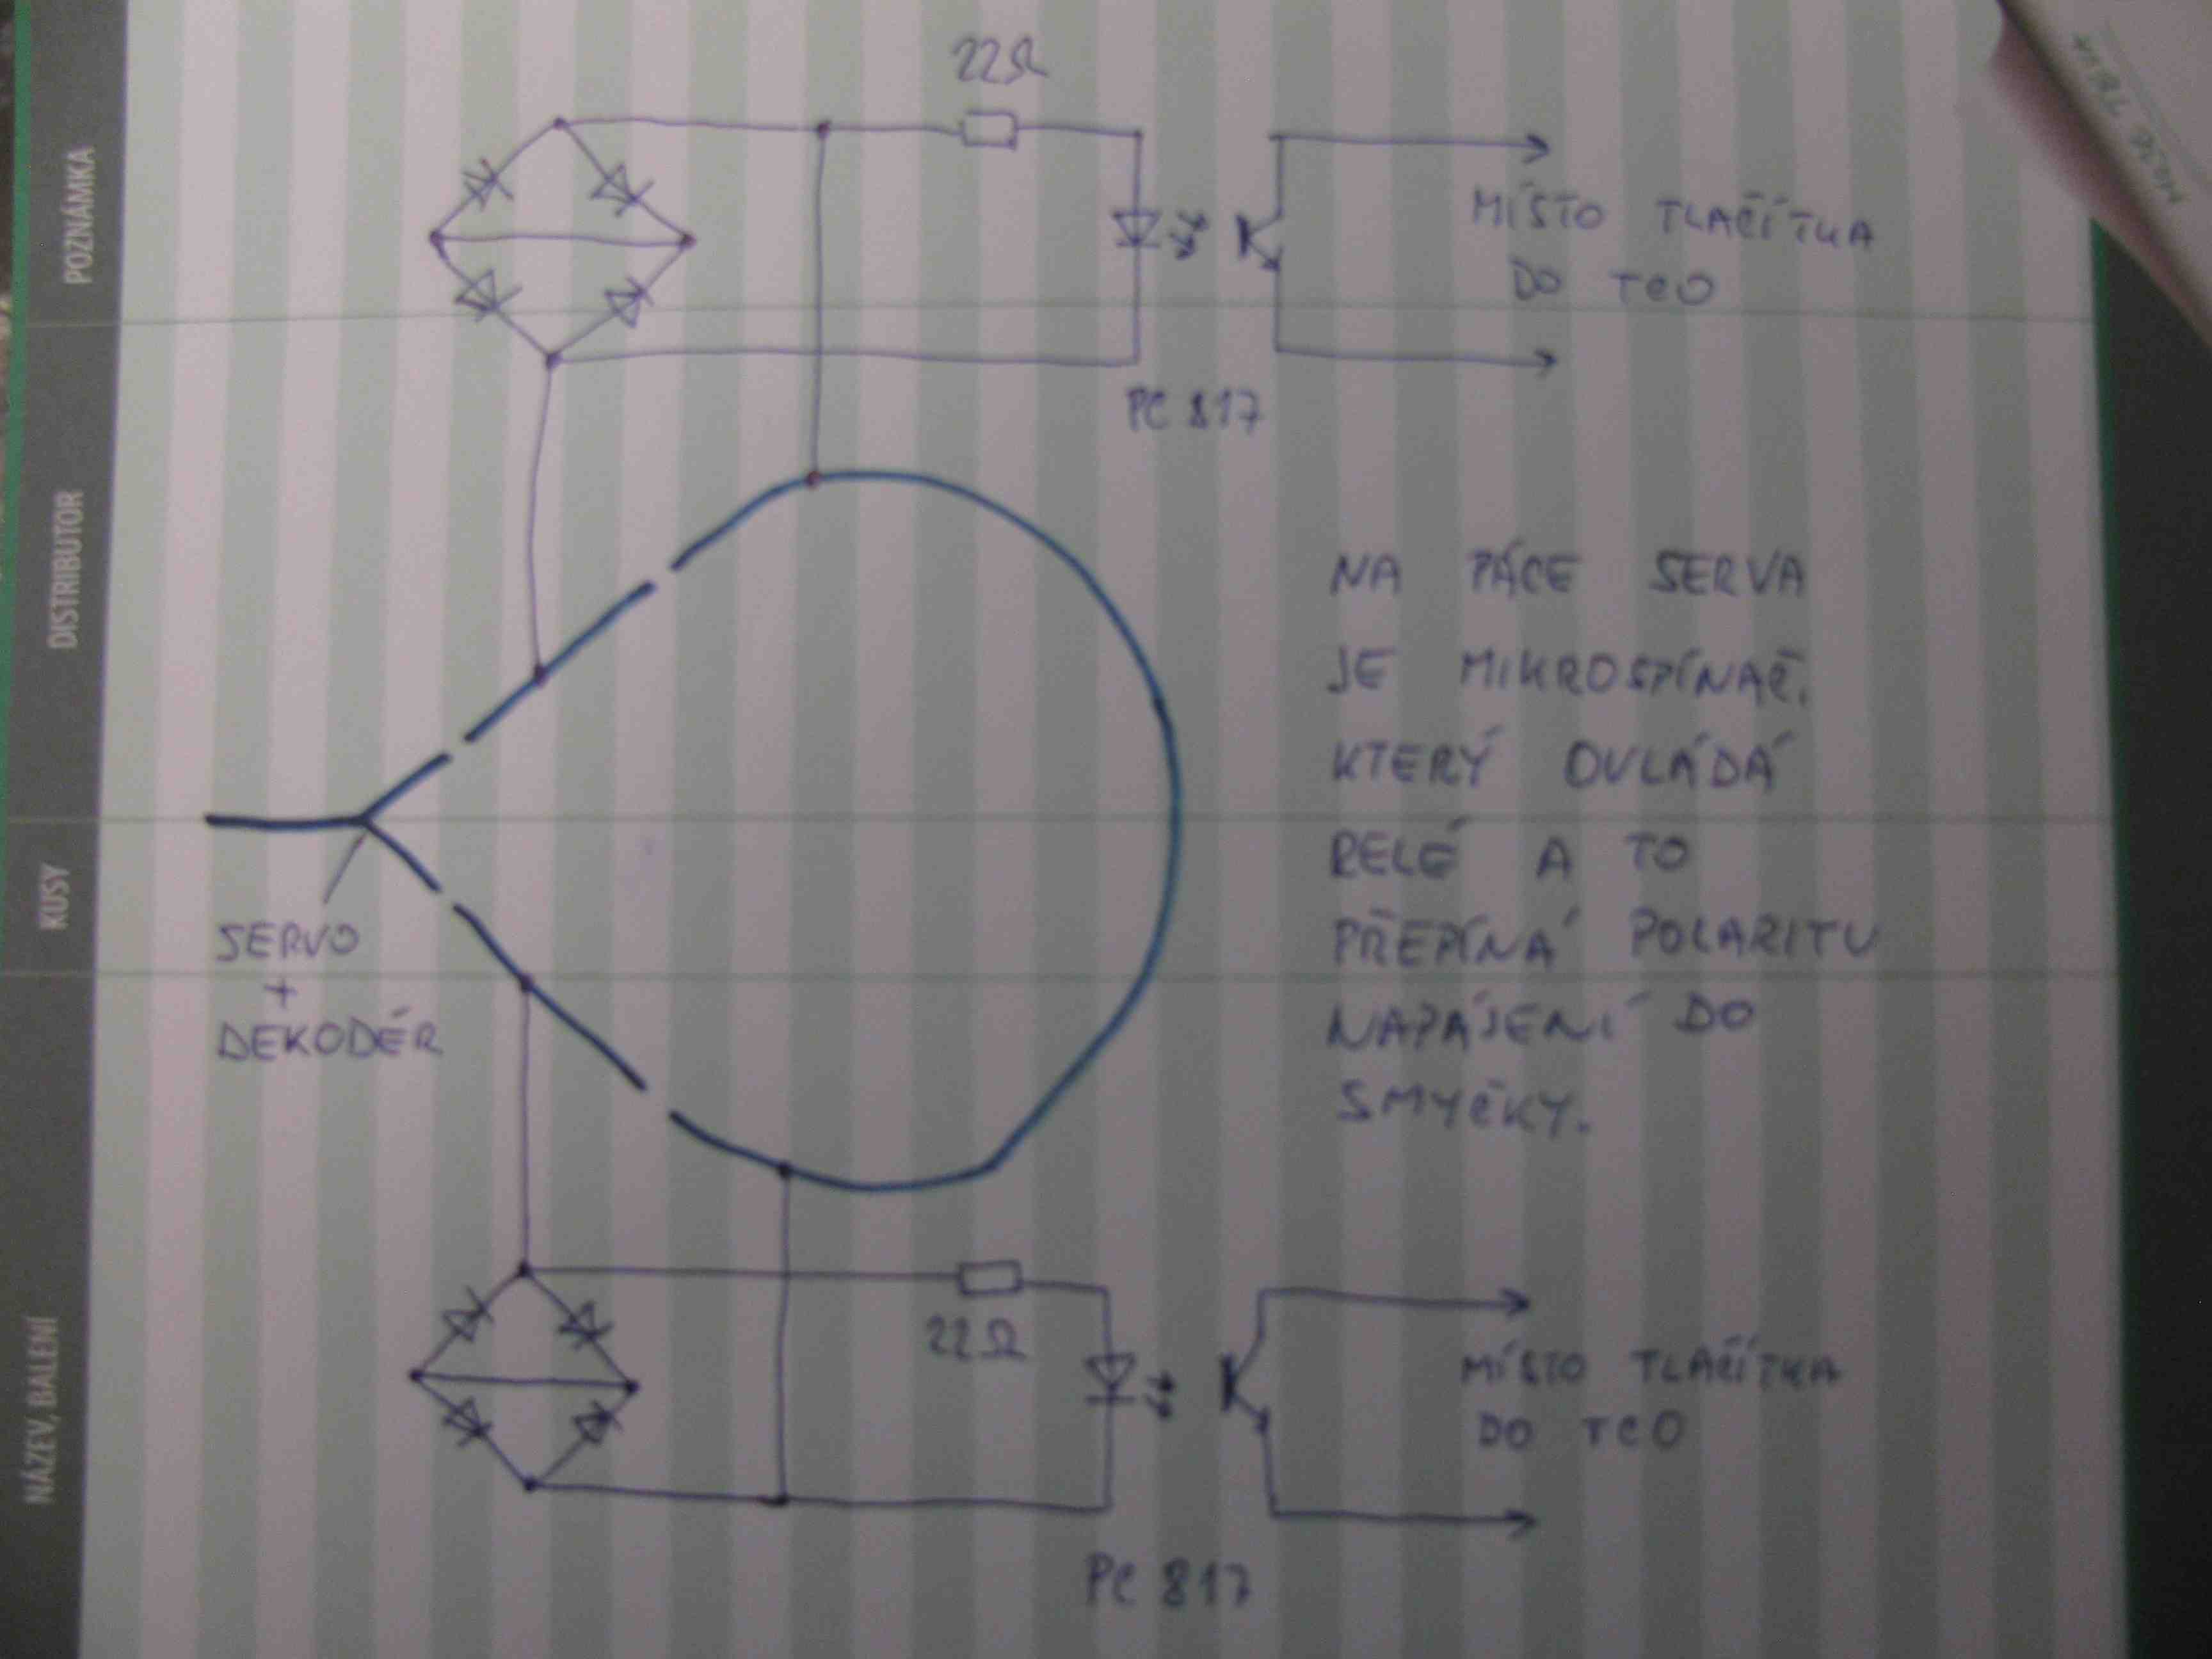 22Ω
MÍSTO TLAČÍTKA
DO TCO
PC 817
NA PÁCE SERVA
JE MIKROSPÍNAČ,
KTERÝ OVLÁDÁ
RELÉ A TO
PŘEPÍNÁ POLARITU
NAPÁJENÍ DO
SMYČKY.
SERVO
+
DEKODÉR
22Ω
MÍSTO TLAČÍTKA
DO TCO
PC 817
POZNÁMKA
DISTRIBUTOR
KUSY
NÁZEV, BALENÍ